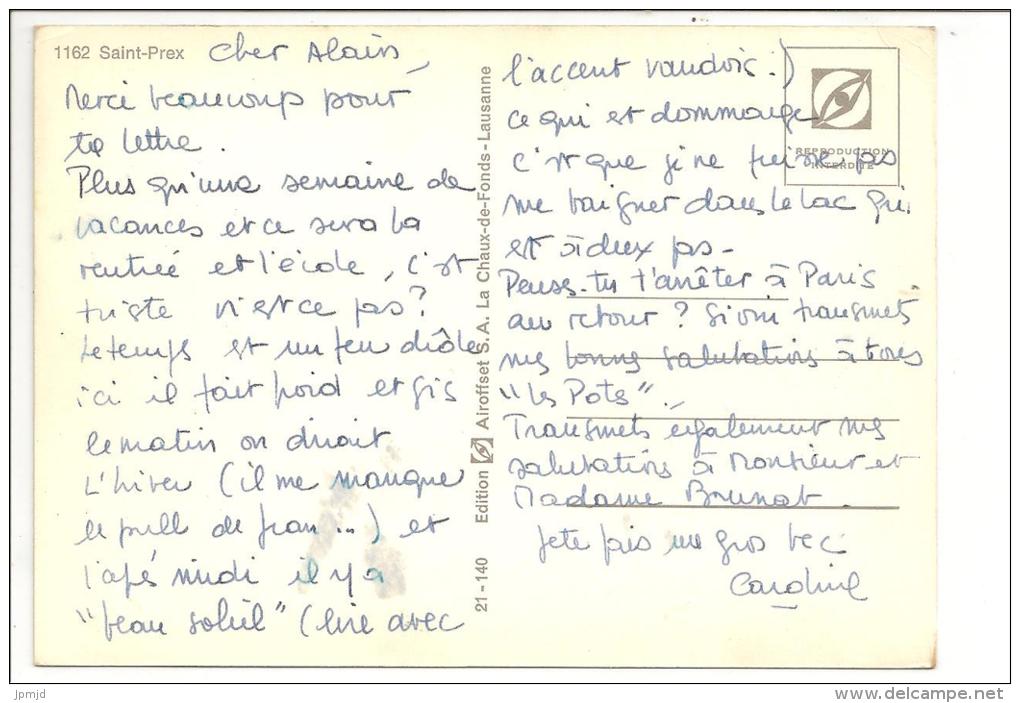 1162 Saint-Prex
Cher Alain,
Merci beaucoup pour
ta lettre.
Plus qu'une semaine de
vacances et ce sera la
rentrée et l'école, c'est
triste n'est ce pas?
Le temps est un peu drôle
ici il fait froid et gris
le matin on dirait
L'hiver (il me manque
le pull de Jean...) et
l'après midi il y a
"beau soleil" (lire avec
l'accent vaudois.)
ce qui est dommage
c'est que je ne puisse pas
me baigner dans le lac qui
est à deux pas -
Penses-tu t'arrêter à Paris
au retour? Si oui transmets
mes bonnes salutations à tous
"les Pots".
Transmets également mes
salutations à Monsieur et
Madame Brunat.
Je te fais un gros bec
Caroline
21-140 Edition Airoffset S.A. La Chaux-de-Fonds - Lausanne
REPRODUCTION
INTERDITE
jpmjd
www.delcampe.net